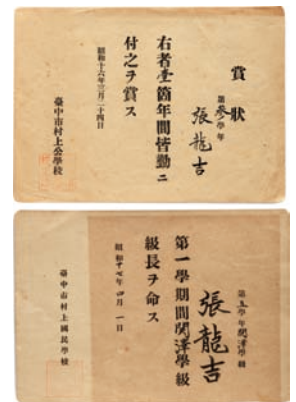 賞狀
第參學年
張龍吉
右者壹箇年間皆勤ニ
付之ヲ賞ス
昭和十六年三月二十四日
臺中市村上公學校
第五學年関澤學級
張龍吉
第一學期間関澤學級
級長ヲ命ス
昭和十七年四月一日
臺中市村上國民學校